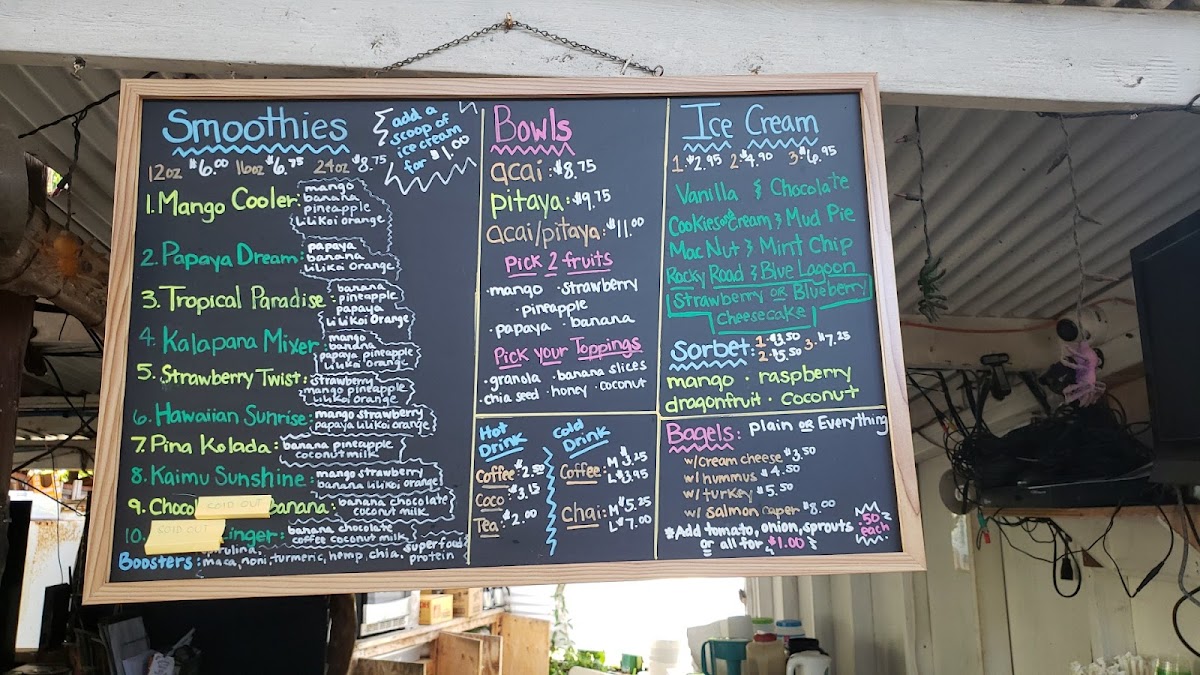 Smoothies
12oz $6.00 16oz $6.75 24oz $8.75
add a
scoop of
ice cream
for $1.00
1. Mango Cooler: mango
banana
pineapple
lilikoi orange
2. Papaya Dream: papaya
banana
lilikoi orange
3. Tropical Paradise: banana
pineapple
papaya
lilikoi orange
4. Kalapana Mixer: mango
banana
papaya pineapple
lilikoi orange
5. Strawberry Twist: strawberry
mango pineapple
lilikoi orange
6. Hawaiian Sunrise: mango strawberry
papaya lilikoi orange
7. Pina Kolada: banana pineapple
coconut milk
8. Kaimu Sunshine: mango strawberry
banana lilikoi orange
9. Choco SOLD OUT Banana: banana chocolate
coconut milk
10. SOLD OUT linger: banana chocolate
coffee coconut milk
Boosters: spirulina, maca, noni, turmeric, hemp, chia, superfood
protein
Bowls
acai: $8.75
pitaya: $9.75
acai/pitaya: $11.00
Pick 2 fruits
· mango · strawberry
· pineapple
· papaya · banana
Pick your Toppings
· granola · banana slices
· chia seed · honey · coconut
Hot
Drink
Coffee $2.50
Coco $3.15
Tea: $2.00
Cold
Drink
Coffee: M $3.25
L $3.95
Chai: M $5.25
L $7.00
Ice Cream
1. $2.95 2. $4.90 3. $6.95
Vanilla & Chocolate
Cookies & Cream & Mud Pie
Mac Nut & Mint Chip
Rocky Road & Blue Lagoon
Strawberry OR Blueberry
cheesecake
Sorbet: 1. $3.50 3. $7.25
2. $5.50
mango · raspberry
dragonfruit · coconut
Bagels: plain OR Everything
w/ cream cheese $3.50
w/ hummus $4.50
w/ turkey $5.50
w/ salmon caper $8.00
* Add tomato, onion, sprouts .50
each
or all for $1.00